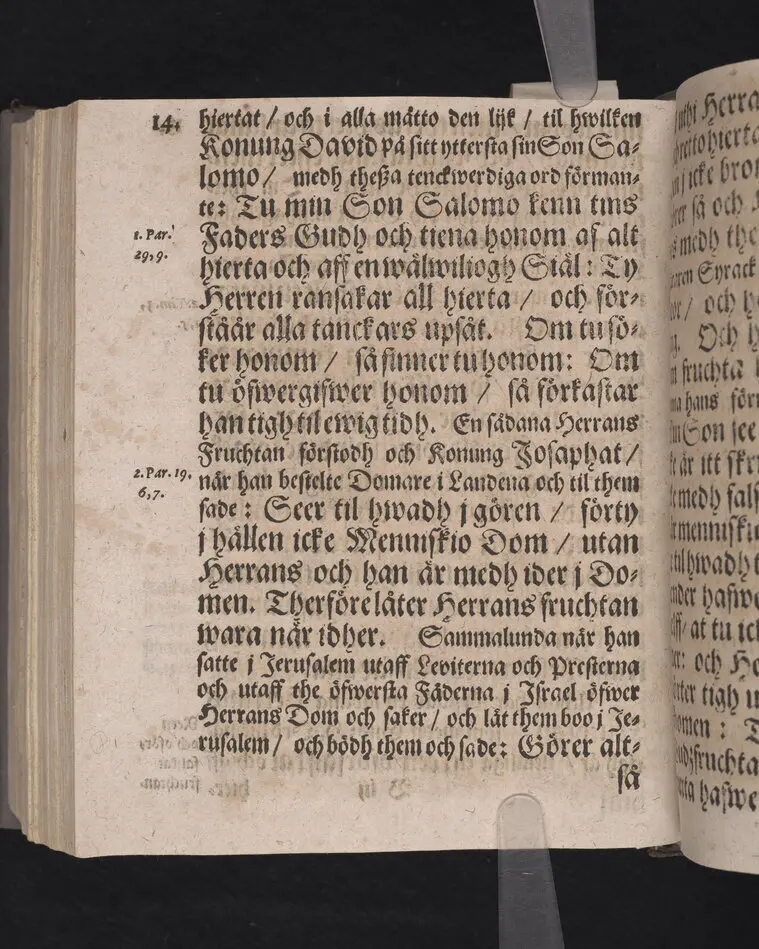 14. hiertat / och i alla måtto den lijk / til hwilken
Konung David på sitt yttersta sin Son Sa-
lomo / medh theßa tenckwerdiga ord förman-
te: Tu min Son Salomo kenn tins
1. Par. Faders Gudh och tiena honom af alt
29,9. hierta och aff en wälwiliogh Siäl: Ty
Herren ransakar all hierta / och för-
ståår alla tanckars upsåt. Om tu sö-
ker honom / så finner tu honom: Om
tu öfwergifwer honom / så förkastar
han tigh til ewig tidh. En sådana Herrans
Fruchtan förstodh och Konung Josaphat /
2. Par. 19. när han bestelte Domare i Landena och til them
6,7. sade: Seer til hwadh j gören / förty
j hållen icke Menniskio Dom / utan
Herrans och han är medh ider j Do-
men. Therföre låter Herrans fruchtan
wara när idher. Sammalunda när han
satte j Jerusalem utaff Leviterna och Presterna
och utaff the öfwersta Fäderna j Israel öfwer
Herrans Dom och saker / och låt them boo j Je-
rusalem / och bödh them och sade: Görer alt-
så